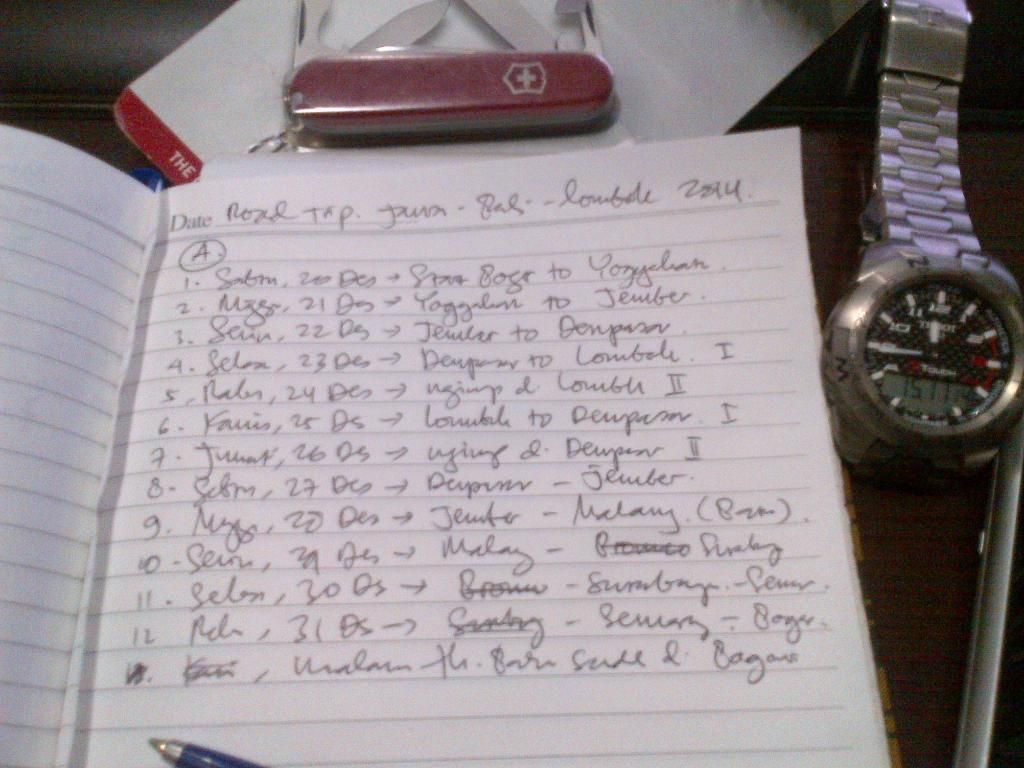 THE
Date Road Trip. Java - Bali - Lombok 2014.
A.
1. Sabtu, 20 Des → Start Bogor to Yogyakarta.
2. Minggu, 21 Des → Yogyakarta to Jember.
3. Senin, 22 Des → Jember to Denpasar.
4. Selasa, 23 Des → Denpasar to Lombok. I
5. Rabu, 24 Des → nginap di Lombok II
6. Kamis, 25 Des → Lombok to Denpasar. I
7. Jumat, 26 Des → nginap di Denpasar II
8. Sabtu, 27 Des → Denpasar - Jember.
9. Minggu, 28 Des → Jember - Malang. (Batu).
10. Senin, 29 Des → Malang - Bromo Surabaya
11. Selasa, 30 Des → Bromo - Surabaya - Semarang.
12 Rabu, 31 Des → Surabaya - Semarang - Bogor.
Kamis, malam th. Baru di Bogor
12
TISSOT
T-TOUCH